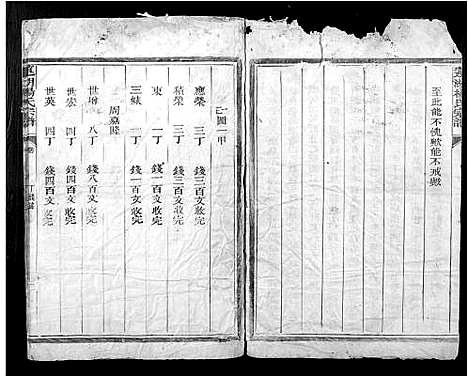 至此能不愧歟能不戒歟
一圖一甲
應榮 三丁 錢三百文收完
積榮 三丁 錢三百文收完
東 一丁 錢一百文收完
三 一丁 錢一百文收完
周嘉睦
世增 八丁 錢八百文收完
世宏 四丁 錢四百文收完
世英 四丁 錢四百文收完
湯氏宗譜